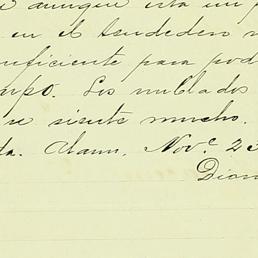 aunque esta un p
en el tendedero n
suficiente para pod
mpo. Los nublados
se siente mucho.
da. Alamo, Nov.e 23
Dion